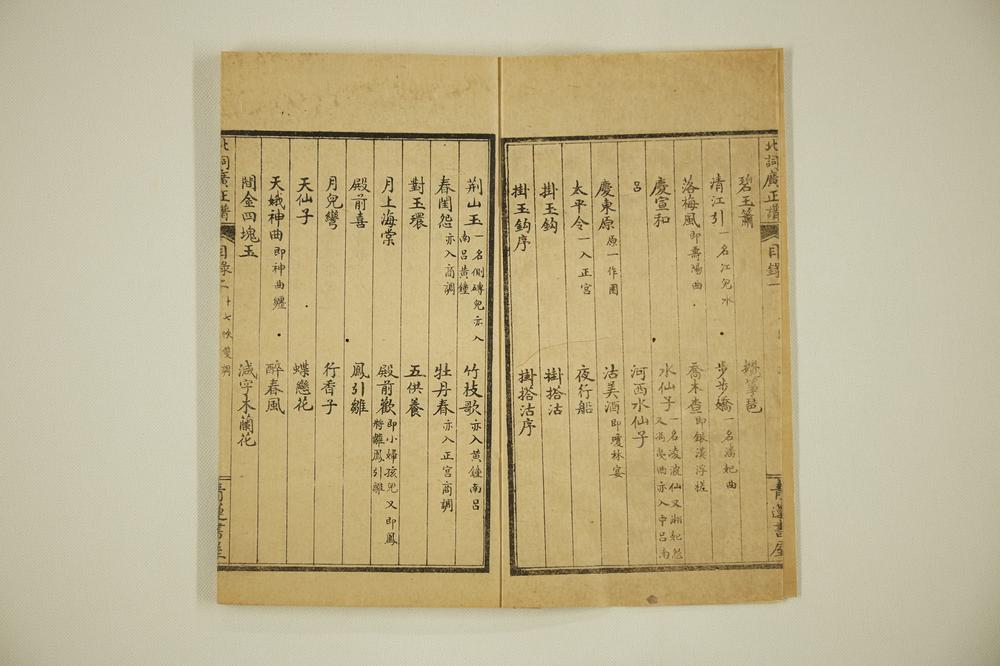 北詞廣正譜 目錄一 青蓮書屋
碧玉簫
清江引 一名江兒水 步步嬌 一名潘妃曲
落梅風 即壽陽曲 喬木查 即銀漢浮槎
慶宣和 水仙子 一名凌波仙又湘妃怨
又馮夷曲亦入中呂南
呂 河西水仙子
慶東原 原一作園 沽美酒 即瓊林宴
太平令 一入正宮 夜行船
掛玉鈎 掛搭沽
掛玉鈎序 掛搭沽序
荊山玉 一名側磚兒亦入
南呂黃鍾 竹枝歌 亦入黃鍾南呂
春閨怨 亦入商調 牡丹春 亦入正宮商調
對玉環 五供養
月上海棠 殿前歡 即小婦孩兒又即鳳
將雛鳳引雛
殿前喜 鳳引雛
月兒彎 行香子
天仙子 蝶戀花
天娥神曲 即神曲纏 醉春風
間金四塊玉 減字木蘭花
北詞廣正譜 目錄二 十七帙雙調 青蓮書屋